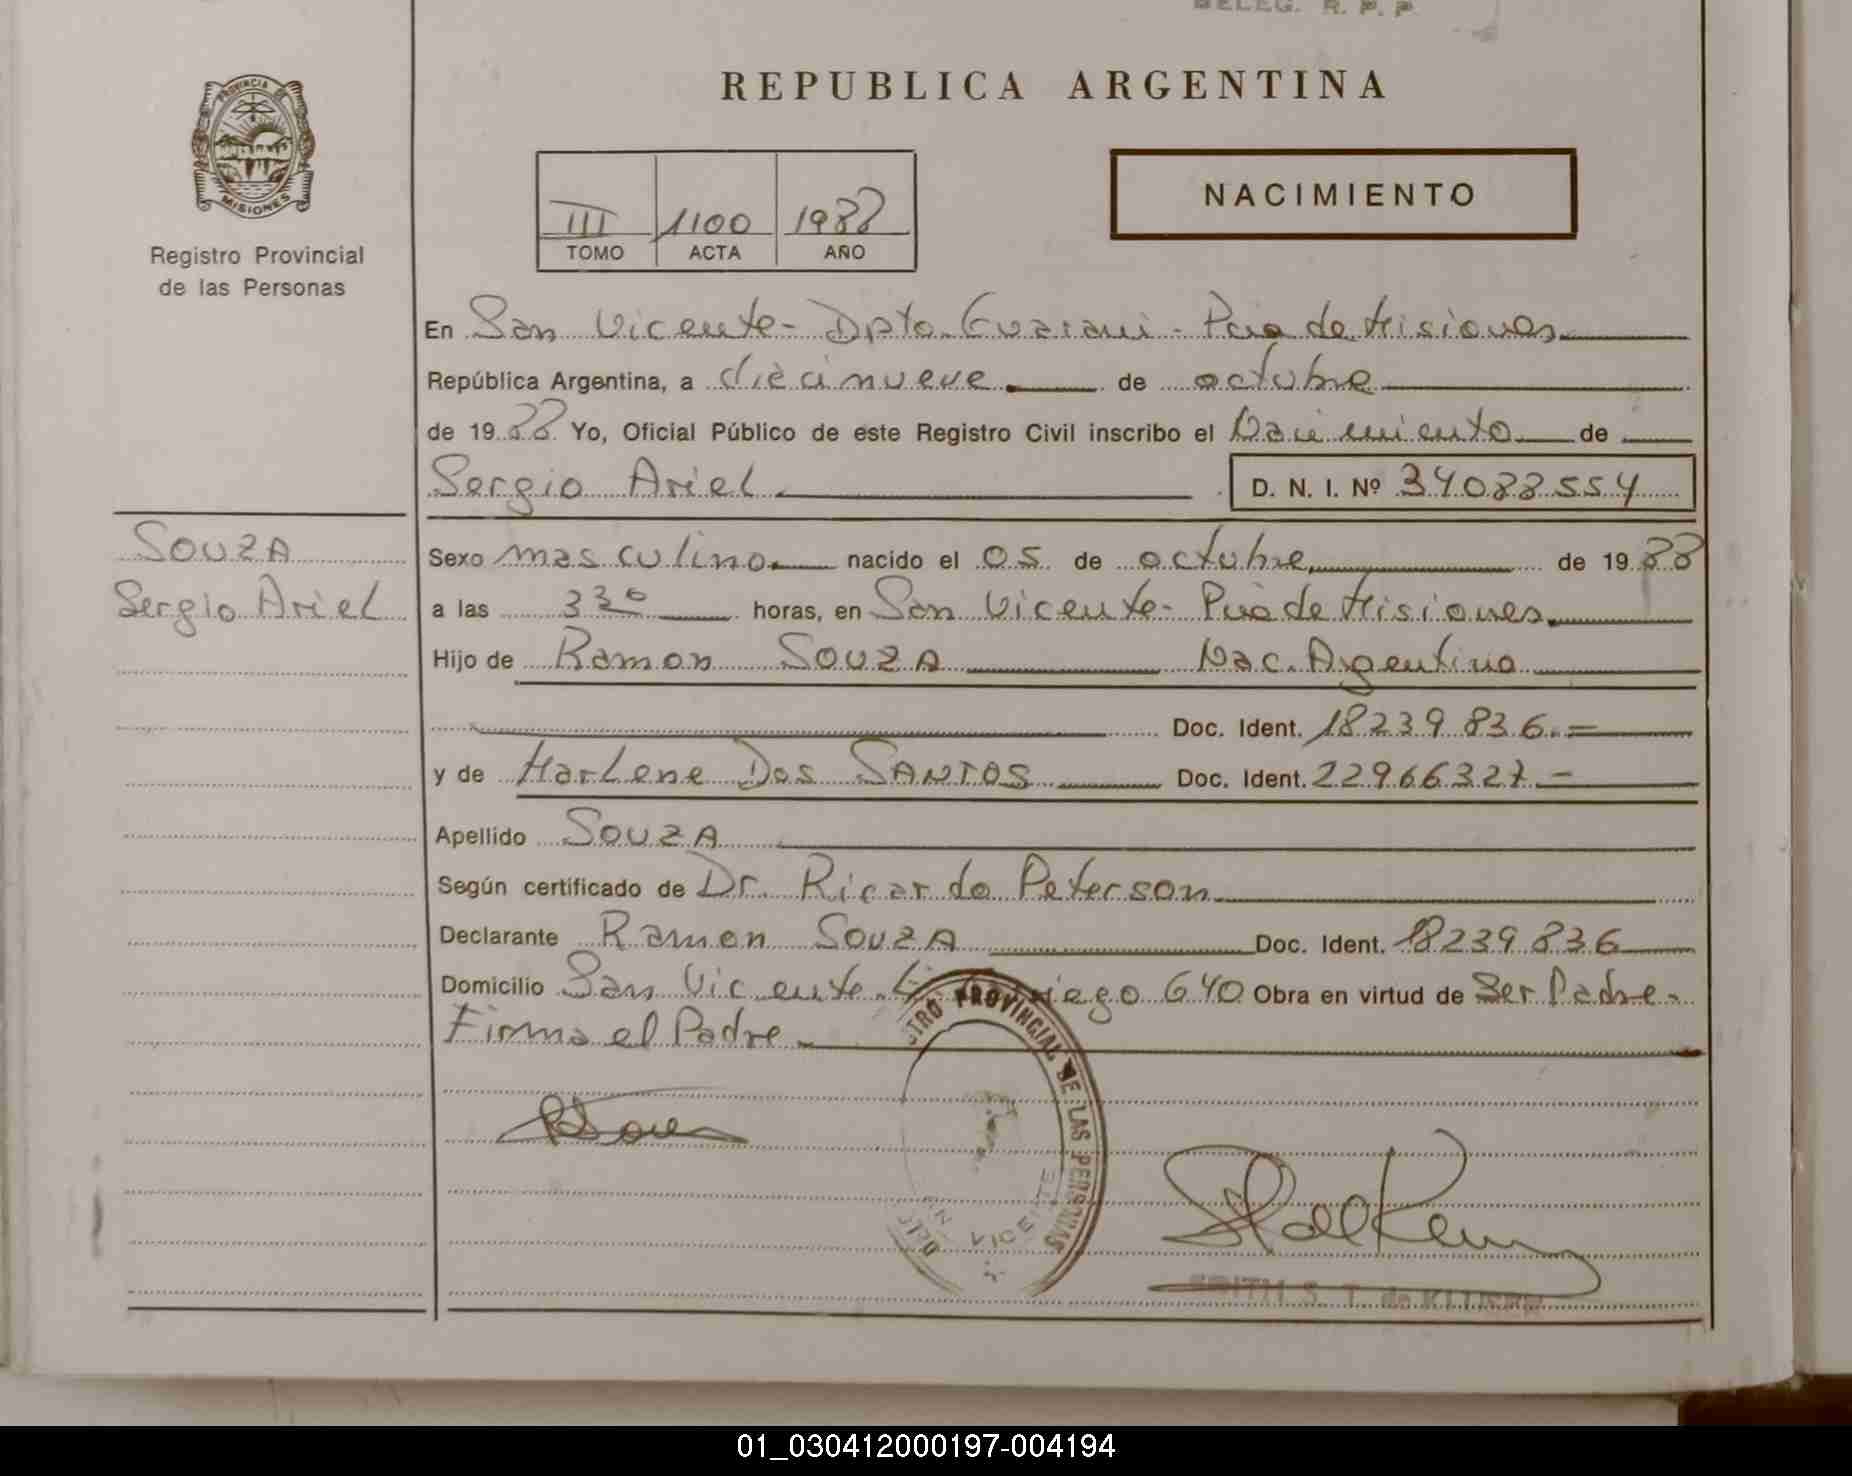 DELEG. R. P. P.
PROVINCIA DE
MISIONES
Registro Provincial
de las Personas
REPUBLICA ARGENTINA
III 1100 1988
TOMO ACTA AÑO
NACIMIENTO
En San Vicente - Dpto. Guarani - Pcia de Misiones
República Argentina, a diecinueve de octubre
de 1988 Yo, Oficial Público de este Registro Civil inscribo el Nacimiento de
Sergio Ariel D. N. I. Nº 34088554
SOUZA
Sergio Ariel
Sexo masculino nacido el 05 de octubre de 1988
a las 3 30 horas, en San Vicente - Pcia de Misiones
Hijo de Ramon SOUZA Nac. Argentina
Doc. Ident. 18239836.=
y de Marlene Dos SANTOS Doc. Ident. 22966327.-
Apellido SOUZA
Según certificado de Dr. Ricardo Peterson
Declarante Ramon SOUZA Doc. Ident. 18239836
Domicilio San Vicente 640 Obra en virtud de Ser Padre.
Firma el Padre
REGISTRO PROVINCIAL DE LAS PERSONAS
VICENTE
EDITH S. T. de KLUSEN
01_030412000197-004194